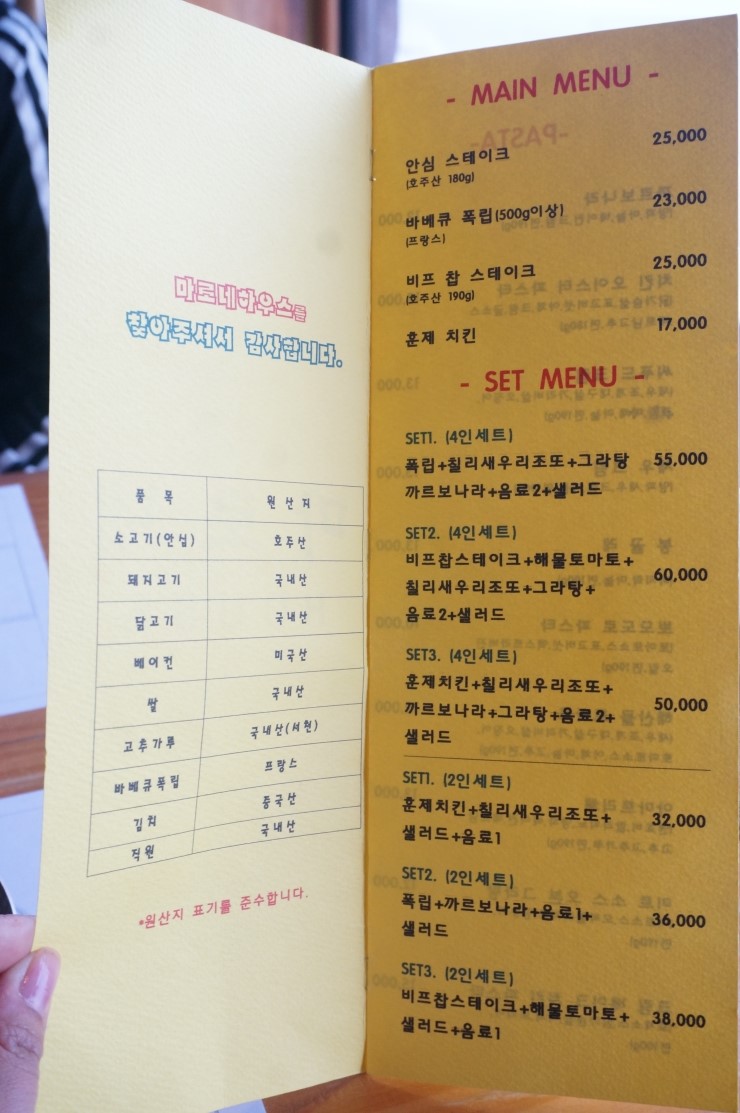 마르네하우스를
찾아주셔서 감사합니다.
품 목 원 산 지
소고기(안심) 호주산
돼지고기 국내산
닭고기 국내산
베이컨 미국산
쌀 국내산
고추가루 국내산(서현)
바베큐폭립 프랑스
김치 중국산
직원 국내산
*원산지 표기를 준수합니다.
- MAIN MENU -
안심 스테이크 25,000
(호주산 180g)
바베큐 폭립(500g이상) 23,000
(프랑스)
비프 찹 스테이크 25,000
(호주산 190g)
훈제 치킨 17,000
- SET MENU -
SET1. (4인세트)
폭립+칠리새우리조또+그라탕 55,000
까르보나라+음료2+샐러드
SET2. (4인세트)
비프찹스테이크+해물토마토+
칠리새우리조또+그라탕+ 60,000
음료2+샐러드
SET3. (4인세트)
훈제치킨+칠리새우리조또+
까르보나라+그라탕+음료2+ 50,000
샐러드
SET1. (2인세트)
훈제치킨+칠리새우리조또+ 32,000
샐러드+음료1
SET2. (2인세트)
폭립+까르보나라+음료1+ 36,000
샐러드
SET3. (2인세트)
비프찹스테이크+해물토마토+ 38,000
샐러드+음료1